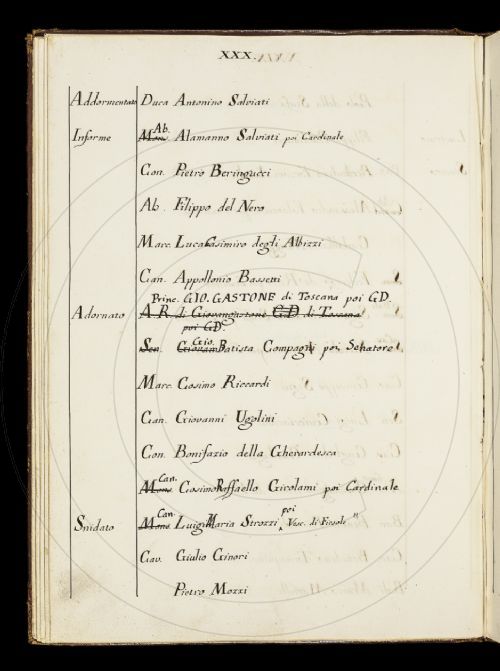 XXX.
Addormentato Duca Antonino Salviati
Ab.
Informe Mons. Alamanno Salviati poi Cardinale
Can. Pietro Beringucci
Ab. Filippo del Nero
Marc. Luca Casimiro degli Albizzi
Can. Appollonio Bassetti
Princ. GIO. GASTONE di Toscana poi GD.
Adornato A.R. di Giovangastone GD di Toscana
poi GD.
Gio.
Sen. Giovam Batista Compagni poi Senatore
Marc. Cosimo Riccardi
Can. Giovanni Ugolini
Con. Bonifazio della Gherardesca
Can.
Mons. Cosimo Raffaello Girolami poi Cardinale
Can. poi
Snidato Mons. Luigi Maria Strozzi Vesc. di Fiesole
Cav. Giulio Ginori
Pietro Mozzi